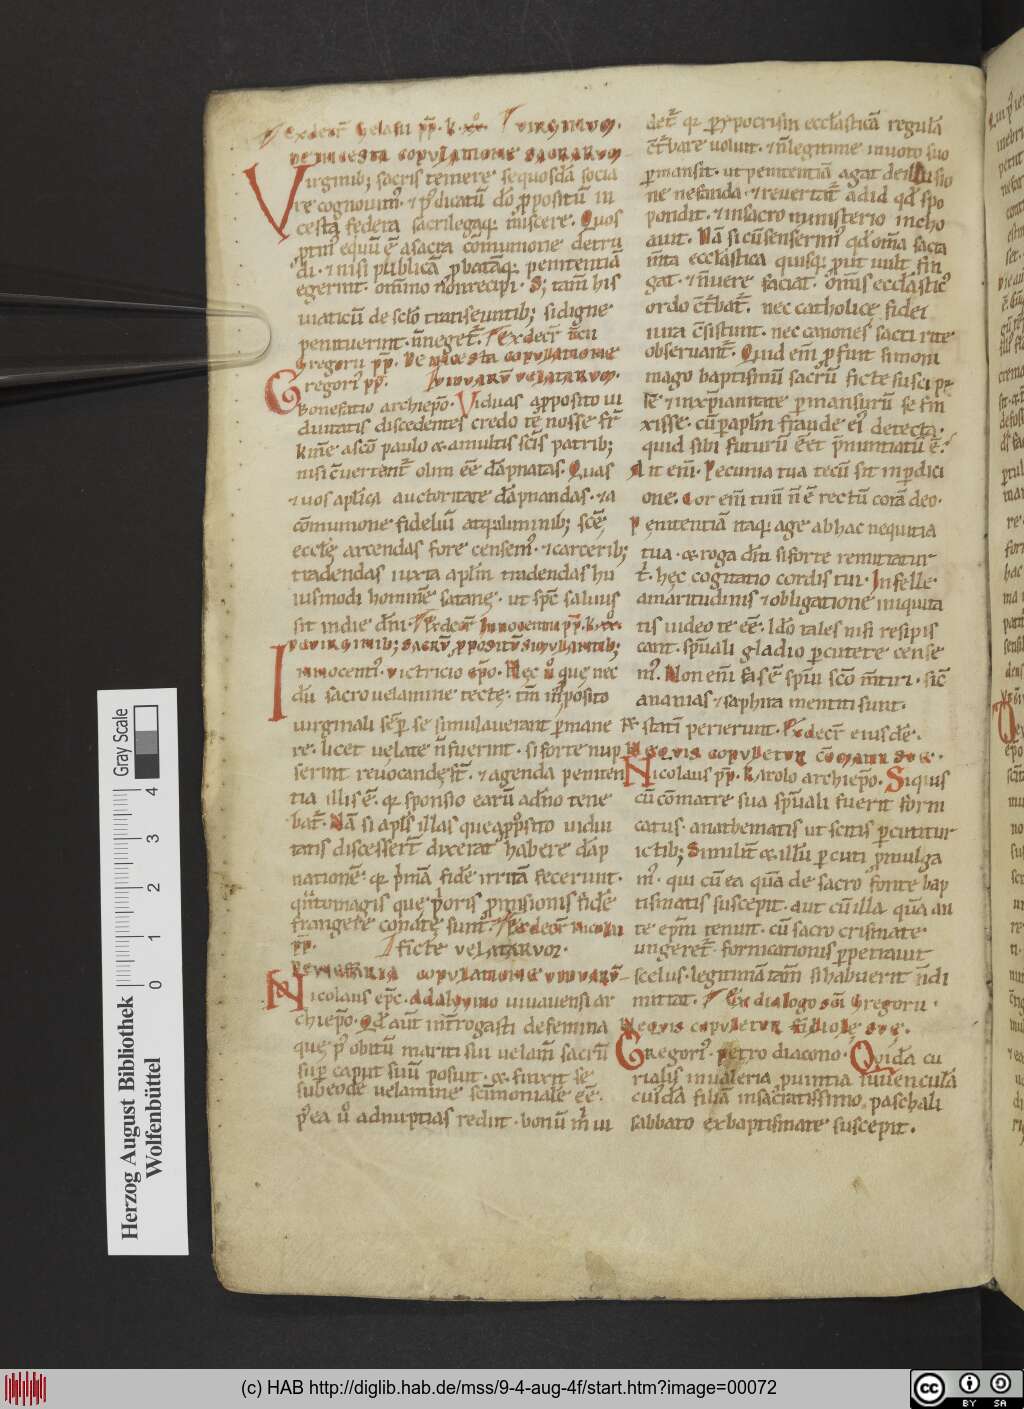 Ex decr̄ Gelasii pp̄. k. xx. virginum.
De incesta copulatione sacrarum
Virginib; sacris temere se quosdā socia
re cognouim᷒. ⁊ p̄ dicatū dō propositū in
cesta federa sacrilegaq; miscere. Quos
ptin᷒ equū ē a sacra cōmunione detru
di. ⁊ nisi publicā ꝓbatāq; penitentiā
egerint. omnino non recipi. S; tam̄ his
uiaticū de sclo transeuntib; si digne
penituerint. n̄ neget᷒. Ex decr̄
Gregorii pp̄. De incesta copulatione
Gregori᷒ pp̄. viduarū velatarum.
Bonefatio archiepo. Viduas a proposito ui
duitatis discedentes credo te nosse fr̄
kme a sco paulo ⁊ a multis scis patrib;
nisi c̄uertent᷒ olim eē dāpnatas. Quas
⁊ nos aplica auctoritate dāpnandas. ⁊ a
cōmunione fideliū atq; a liminib; scē
ecclę arcendas fore censem᷒. ⁊ carcerib;
tradendas iuxta aplm tradendas hu
iusmodi hominē satanę. ut spc saluus
sit in die dn̄i. Ex decr̄ Innocentii pp̄. k. xx.
De virginib; sacrū propositū simulantib;
Innocenti᷒ victricio epo. Hęc u᷒ quę nec
dū sacro uelamine tectę. tm̄ in proposito
uirginali sep̄ se simulauerant permane
re. licet uelate n̄ fuerint. si forte nup
serint reuocandę st̄. ⁊ agenda peniten
tia illis ē. q; sponsio earū a dn̄o tene
bat᷒. Nā si apls illas que a proposito uidui
tatis discesserīt dixerat habere dāp
nationē. q; primā fidē irritā fecerunt.
quātomagis que prioris pmissionis fidē
frangere conatę sunt. Ex decr̄ Nicolai
pp̄. ficte velatarum.
De nefaria copulatione viduarū
Nicolaus epc. Adaluuino iuuauensi ar
chiepo. Qd aut̄ int̄rogasti de femina
quę p᷒ obitū mariti sui uelam̄ sacrū
sup̄ caput suū posuit. ⁊ finxit se
sub eodē uelamine sc̄imoniale eē.
p᷒ea u᷒ ad nuptias rediit. bonū m̄ ui
det᷒ q; per ypocrisin ecclasticā regulā
c̄t᷒bare uoluit. ⁊ n̄ legitime in uoto suo
permansit. ut penitentiā agat de illusio
ne nefanda. ⁊ reuertat᷒ ad id qd spo
pondit. ⁊ in sacro ministerio incho
auit. Nā si cū senserim᷒ qd omā sacra
m̄ta ecclastica quisq; put uult fin
gat. ⁊ n̄ uere faciat. om̄is ecclastic᷒
ordo c̄t᷒bat᷒. nec catholicę fidei
iura c̄sistunt. nec canones sacri rite
obseruant᷒. Quid em̄ ꝓfuit simoni
mago baptismū sacrū ficte suscipe
sē ⁊ in xp̄ianitate permansurū se fin
xisse. cū per aplm fraude ei᷒ detecta.
quid sibi futurū eēt p̄nuntiatū ē.
Ait em̄. Pecunia tua tecū sit in perdici
one. Cor em̄ tuū n̄ ē rectū corā deo.
Penitentiā itaq; age ab hac nequitia
tua. ⁊ roga dm̄ si forte remittatur
t᷒. hęc cogitatio cordis tui. In felle.
amaritudinis ⁊ obligatione iniquita
tis uideo te eē. Ido tales nisi resipis
cant. spuali gladio percutere cense
m᷒. Non em̄ fas ē spm̄ scō m̄tiri. sic
ananias ⁊ saphira mentiti sunt.
⁊ statī perierunt. Ex decr̄ eiusdē.
Nequis copuletur cōmatri suę.
Nicolaus pp̄. Karolo archiepo. Siquis
cū cōmatre sua spuali fuerit forni
catus. anathematis ut scitis percutitur
ictib; Similit̄ ⁊ illū percuti pmulga
m᷒. qui cū ea quā de sacro fonte bap
tismatis suscepit. aut cū illa quā an
te epm̄ tenuit. cū sacro crismate
ungeret᷒. fornicationis perpetrauit
scelus. legitimā tam̄ si habuerit n̄ di
mittat. Ex dialogo sci Gregorii.
Nequis copuletur filiolę suę.
Gregori᷒. petro diacono. Quidā cu
rialis in ualeria puintia iuuenculā
cuidā filiā in sacratissimo paschali
sabbato ex baptismate suscepit.
Gray Scale
0 1 2 3 4
Herzog August Bibliothek
Wolfenbüttel
(c) HAB http://diglib.hab.de/mss/9-4-aug-4f/start.htm?image=00072
cc BY SA